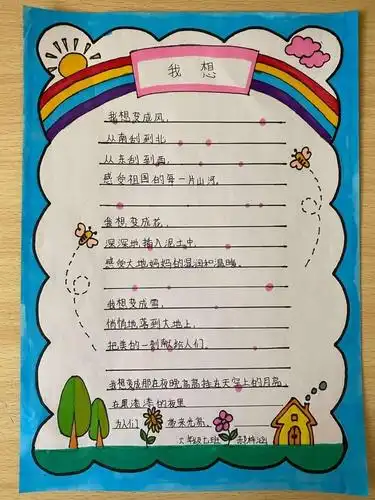 我 想
我想变成风，
从南刮到北
从东刮到西，
感受祖国的每一片山河。
我想变成花，
深深地插入泥土中，
感觉大地妈妈的湿润和温暖。
我想变成雪，
悄悄地落到大地上，
把美的一刻献给人们。
我想变成那在夜晚高高挂在天空上的月亮，
在黑漆漆的夜里
为人们 带来光亮。
六年级七班